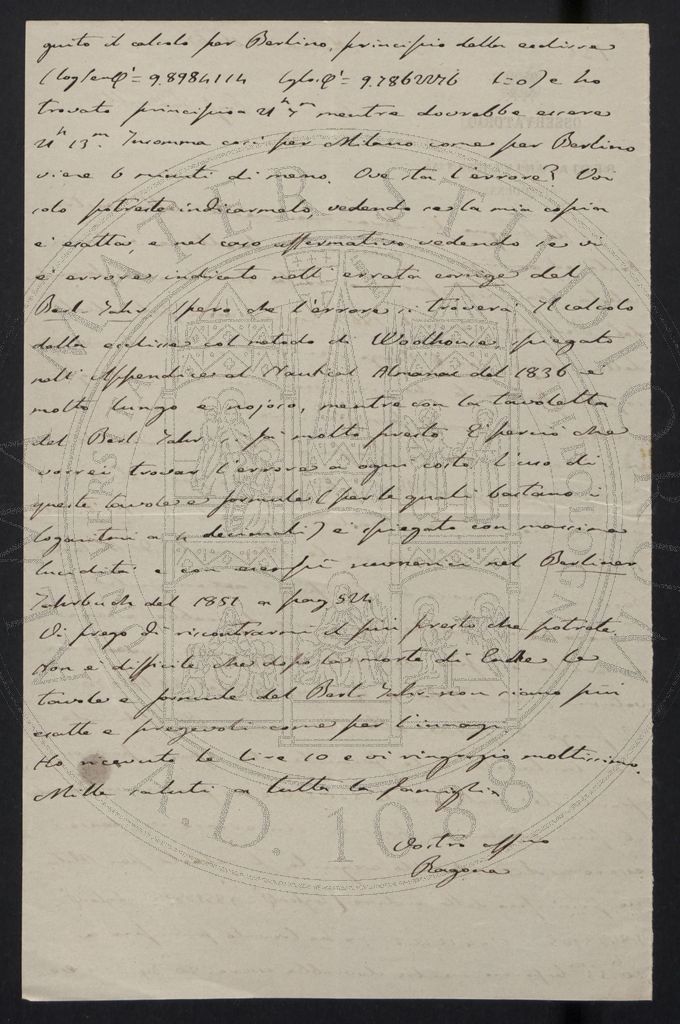 guito il calcolo per Berlino, principio della ecclisse
(log sen φ' = 9.8984114 log cos φ' = 9.7862276 t=0) e ho
trovato principio a 21ʰ 7ᵐ mentre dovrebbe essere
21ʰ 13ᵐ. Insomma così per Milano come per Berlino
viene 6 minuti di meno. Ove sta l'errore? Voi
solo potreste indicarmelo, vedendo se la mia copia
è esatta, e nel caso affermativo vedendo se vi
è errore indicato nell' errata corrige del
Berl. Jahr. Spero che l'errore si troverà. Il calcolo
della ecclisse col metodo di Woolhouse, spiegato
nell' Appendice al Nautical Almanac del 1836 è
molto lungo e nojoso, mentre con la tavoletta
del Berl. Jahr. si fa molto presto. È perciò che
vorrei trovar l'errore a ogni costo. L'uso di
queste tavole e formule (per le quali bastano i
logaritmi a 4 decimali) è spiegato con massima
lucidità e con esempii numerici nel Berliner
Jahrbuch del 1851 a pag 324
Vi prego di riscontrarmi il più presto che potrete.
Non è difficile che dopo la morte di Encke le
tavole e formule del Berl. Jahr. non siano più
esatte e pregevoli come per l'innanzi.
Ho ricevuto le lire 10 e vi ringrazio moltissimo.
Mille saluti a tutta la famiglia
Vostro affmo
Ragona
ALMA MATER STUDIORUM
A.D. 1088